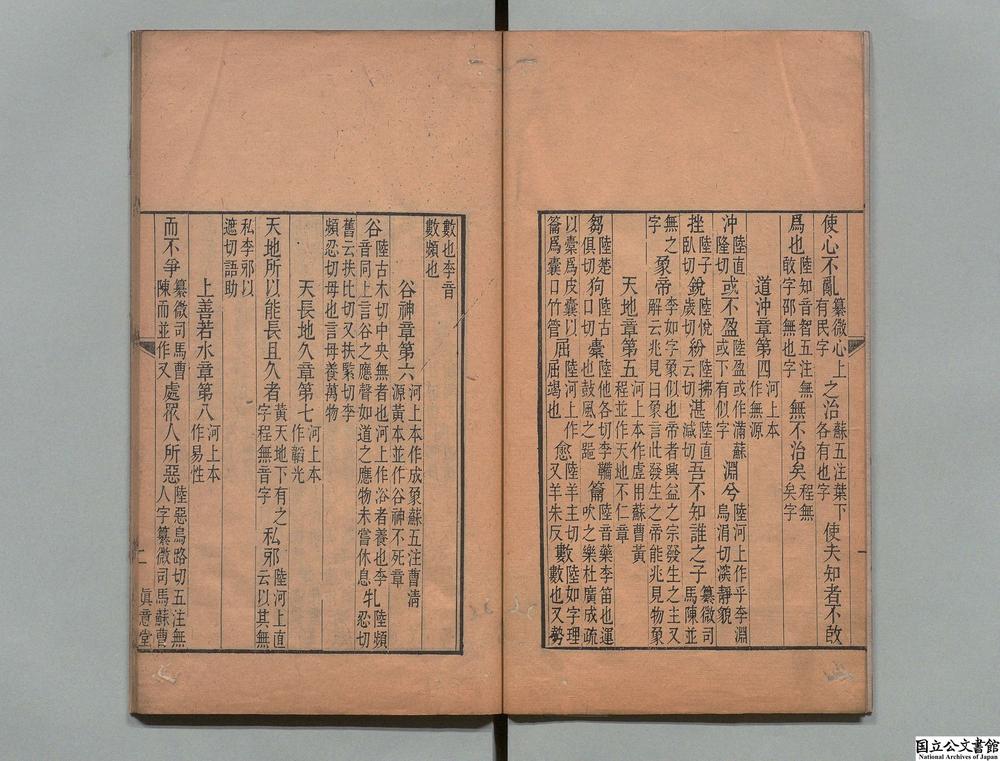 使心不亂纂微心上有民字之治蘇五注葉下各有也字使夫知者不敢
爲也陸知音智五注無敢字邵無也字無不治矣程無矣字
道沖章第四河上本作無源
沖陸直隆切或不盈陸盈或作滿蘇或下有似字淵兮陸河上作乎李淵烏涓切深靜貌
挫陸子臥切銳陸悅歲切紛陸拂云切湛陸直減切吾不知誰之子纂微司馬陳並
無之字象帝李如字象似也帝者興益之宗發生之主又解云兆見曰象言此發生之帝能兆見物象
天地章第五河上本作虛用蘇曹黃程並作天地不仁章
芻陸楚俱切狗陸古口切橐陸他各切李鞴也鼓風之籥陸音藥李笛也運吹之樂杜廣成疏
以橐爲皮囊以籥爲囊口竹管屈陸河上作屈竭也愈陸羊主切又羊朱反數陸如字理數也又勢
一
數也李音數頻也
谷神章第六河上本作成象蘇五注曹清源黃本並作谷神不死章
谷陸古木切中央無者也河上作浴者養也李音同上言谷之應聲如道之應物未嘗休息牝陸頻忍切
舊云扶比切又扶緊切李頻忍切母也言母養萬物
天長地久章第七河上本作韜光
天地所以能長且久者黃天地下有之字程無音字私邪陸河上直云以其無
私李邪以遮切語助
上善若水章第八河上本作易性
而不爭纂微司馬曹陳而並作又處眾人所惡陸惡烏路切五注無人字纂微司馬蘇曹
二
眞意堂
国立公文書館
National Archives of Japan